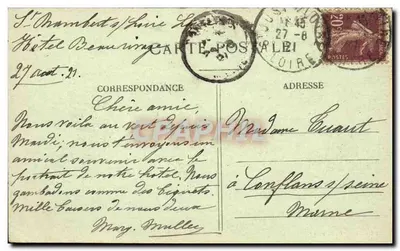 St Rambert s/Loire
Hôtel Beaurivage
27 août 21
CARTE POSTALE
20
27-8
21
LOIRE
CORRESPONDANCE
ADRESSE
Chère amie,
Nous voilà au vert depuis
Mardi; nous t'envoyons un
amical souvenir avec le
portrait de notre hôtel. Nous
gambadons comme des
Mille baisers de nous deux
Mary
Madame Tuaut
à Conflans s/seine
Marne